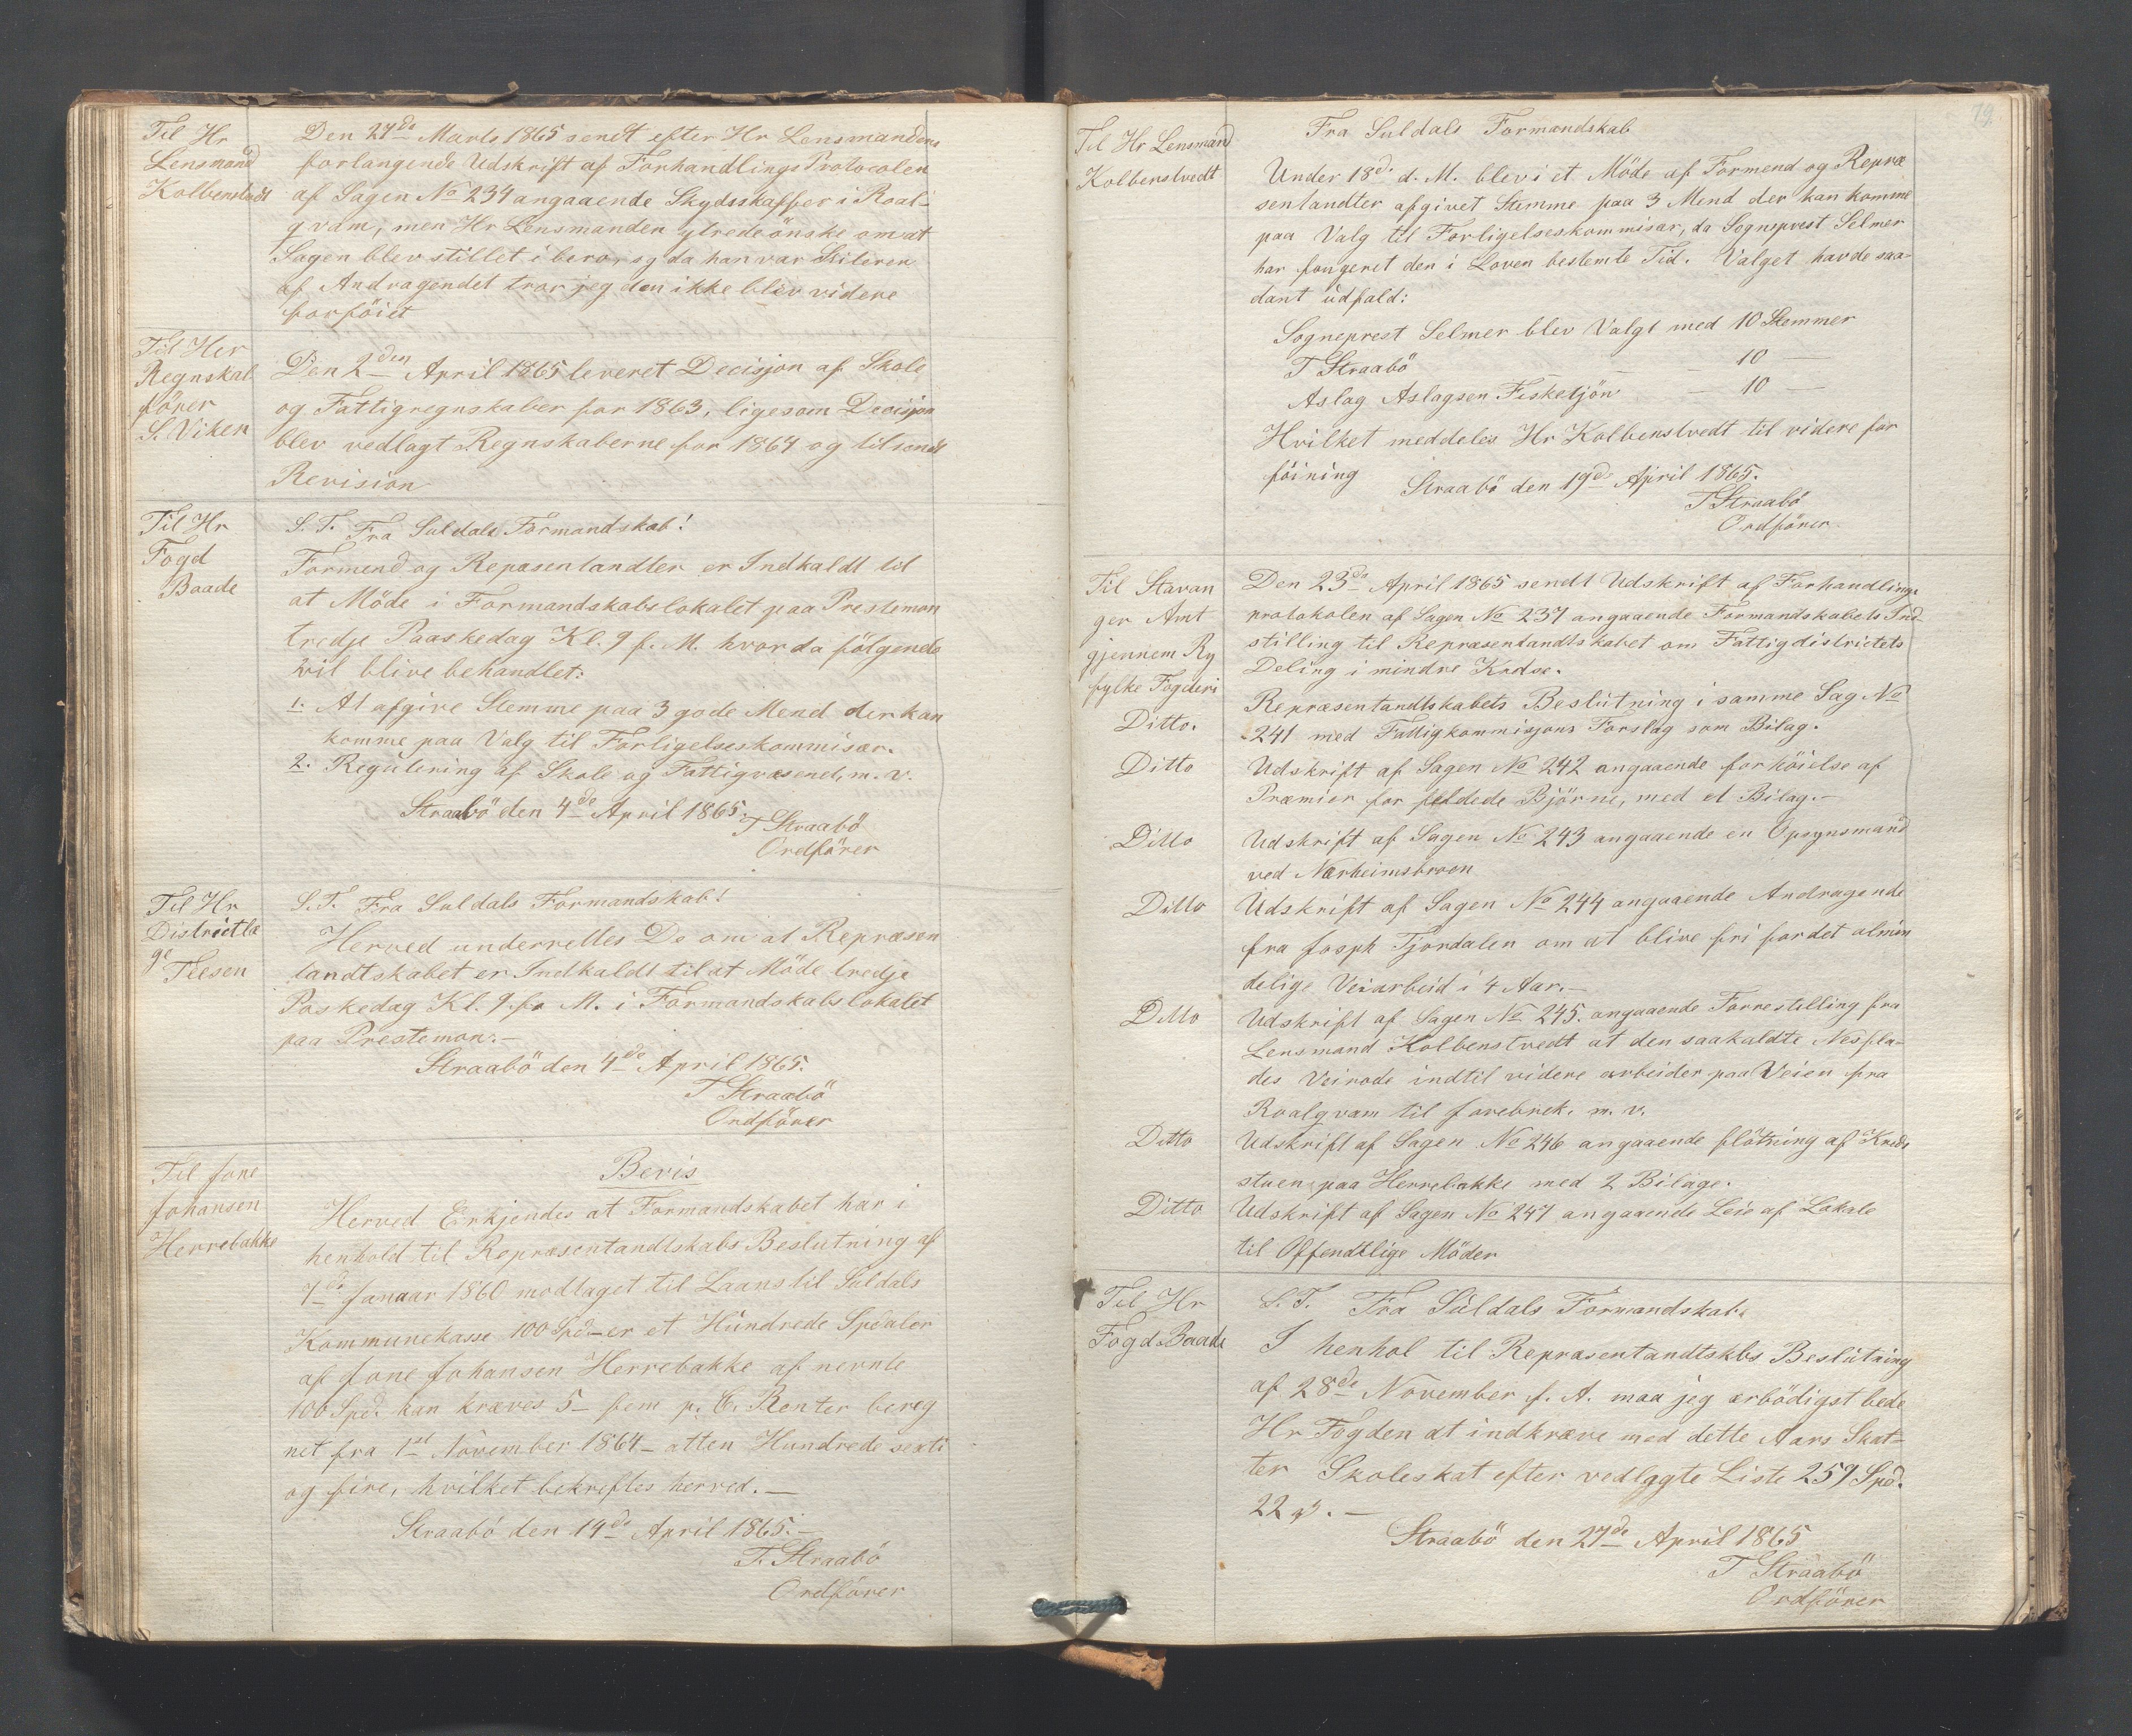 Til Hr
Lensmand
Kolbenstvedt
Den 24de Marts 1865 sendt efter Hr Lensmandens
forlangende Udskrift af Forhandlings Protocolen
af Sagen No 234 angaaende Skydsskaffer i Roal-
qvam, men Hr Lensmanden ytrede önske om at
Sagen blev stillet i bero, og da han var
af Andragendet tror jeg den ikke blev videre
forföiet
Til Her
Regnskab
förer
S. Viken
Den 2den April 1865 leveret Decisjon af Skole
og Fattigregnskaber for 1863, ligesom Decisjon
blev vedlagt Regnskaberne for 1864 og tilsendt
Revision
Til Hr
Fogd
Baade
S. T. Fra Suldals Formandskab!
Formend og Repasentandter er Indkaldt til
at Möde i Formandskabslokalet paa Prestemon
tredje Paaskedag Kl. 9 f. M. hvor da fölgende
vil blive behandlet:
1. At afgive Stemme paa 3 gode Mend der kan
komme paa Valg til Forligelseskommisær.
2. Regulering af Skole og Fattigvæsenet, m. v.
Straabö den 4de April 1865.
T Straabö
Ordförer
Til Hr
Districtlæ
ge
Teesen
S. T. Fra Suldals Formandskab!
Herved underrettes De om at Repræsen
tandtskabet er Indkaldt til at Möde tredje
Poskedag Kl. 9 fr M. i Formandskabslokalet
paa Prestemon.-
Straabö den 4de April 1865.
T Straabö
Ordförer
Til Jone
Johansen
Herrebakke
Bevis
Herved Erkjendes at Formandskabet har i
henhold til Repræsentandtskabs Beslutning af
7de Januar 1860 modtaget til Laans til Suldals
Kommunekasse 100 Spd-er et Hundrede Spedaler
af Jone Johansen Herrebakke af nevnte
100 Spd. kan kræves 5- fem p. C. Renter bereg
net fra 1st November 1864- atten Hundrede sexti
og fire, hvilket bekreftes herved.-
Straabö den 14de April 1865.-
T. Straabö
Ordförer
79
Til Hr Lensmand
Kolbenstvedt
Fra Suldals Formandskab
Under 18de d. M. blev i et Möde af Formend og Repræ
sentandter afgivet Stemme paa 3 Mend der kan komme
paa Valg til Forligelseskommisær, da Sogneprest Selmer
har fungeret den i Loven bestemte Tid. Valget havde saa-
dant udfald:
Sogneprest Selmer blev Valgt med 10 Stemmer
T Straabö - - 10 -
Aslag Aslagsen Fisketjön - 10 -
Hvilket meddeles Hr Kolbenstvedt til videre for
föining
Straabö den 19de April 1865.
T Straabö
Ordförer
Til Stavan
ger Amt
gjennem Ry
fylke Fogderi
Den 23de April 1865 sendt Udskrift af Forhandlings
protokolen af Sagen No 237 angaaende Formandskabets Ind
stilling til Repræsentandtskabet om Fattigdistrictets
Deling i mindre Kredse.
Ditto.
Repræsentandtskabets Beslutning i samme Sag No
241 med Fattigkommisjons Forslag som Bilag.
Ditto
Udskrift af Sagen No 242 angaaende forhöielse af
Præmier for feldede Björne, med et Bilag.-
Ditto
Udskrift af Sagen No 243 angaaende en Opsynsmand
ved Nærheimsbroen
Ditto
Udskrift af Sagen No 244 angaaende Andragende
fra Josph Tjordalen om at blive fri for det almin
delige Veiarbeid i 4 Aar.-
Ditto
Udskrift af Sagen No 245. angaaende Forrestilling fra
Lensmand Kolbenstvedt at den saakaldte Nesfla-
des Veirode indtil videre arbeider paa Veien fra
Roalqvam til Jarebrek. m. v.
Ditto
Udskrift af Sagen No 246 angaaende flötning af Kreds
stuen paa Herrebakke med 2 Bilage.
Ditto
Udskrift af Sagen No 247 angaaende Leie af Lokale
til Offendtlige Möder
Til Hr
Fogd Baade
S. T. Fra Suldals Formandskab.
I henhol til Repræsentandtskbs Beslutning
af 28de November f. A. maa jeg ærbödigst bede
Hr Fogden at indkræve med dette Aars Skat-
ter Skoleskat efter vedlagte Liste 259 Spd.
22 β. -
Straabö den 27de April 1865
T Straabö
Ordförer